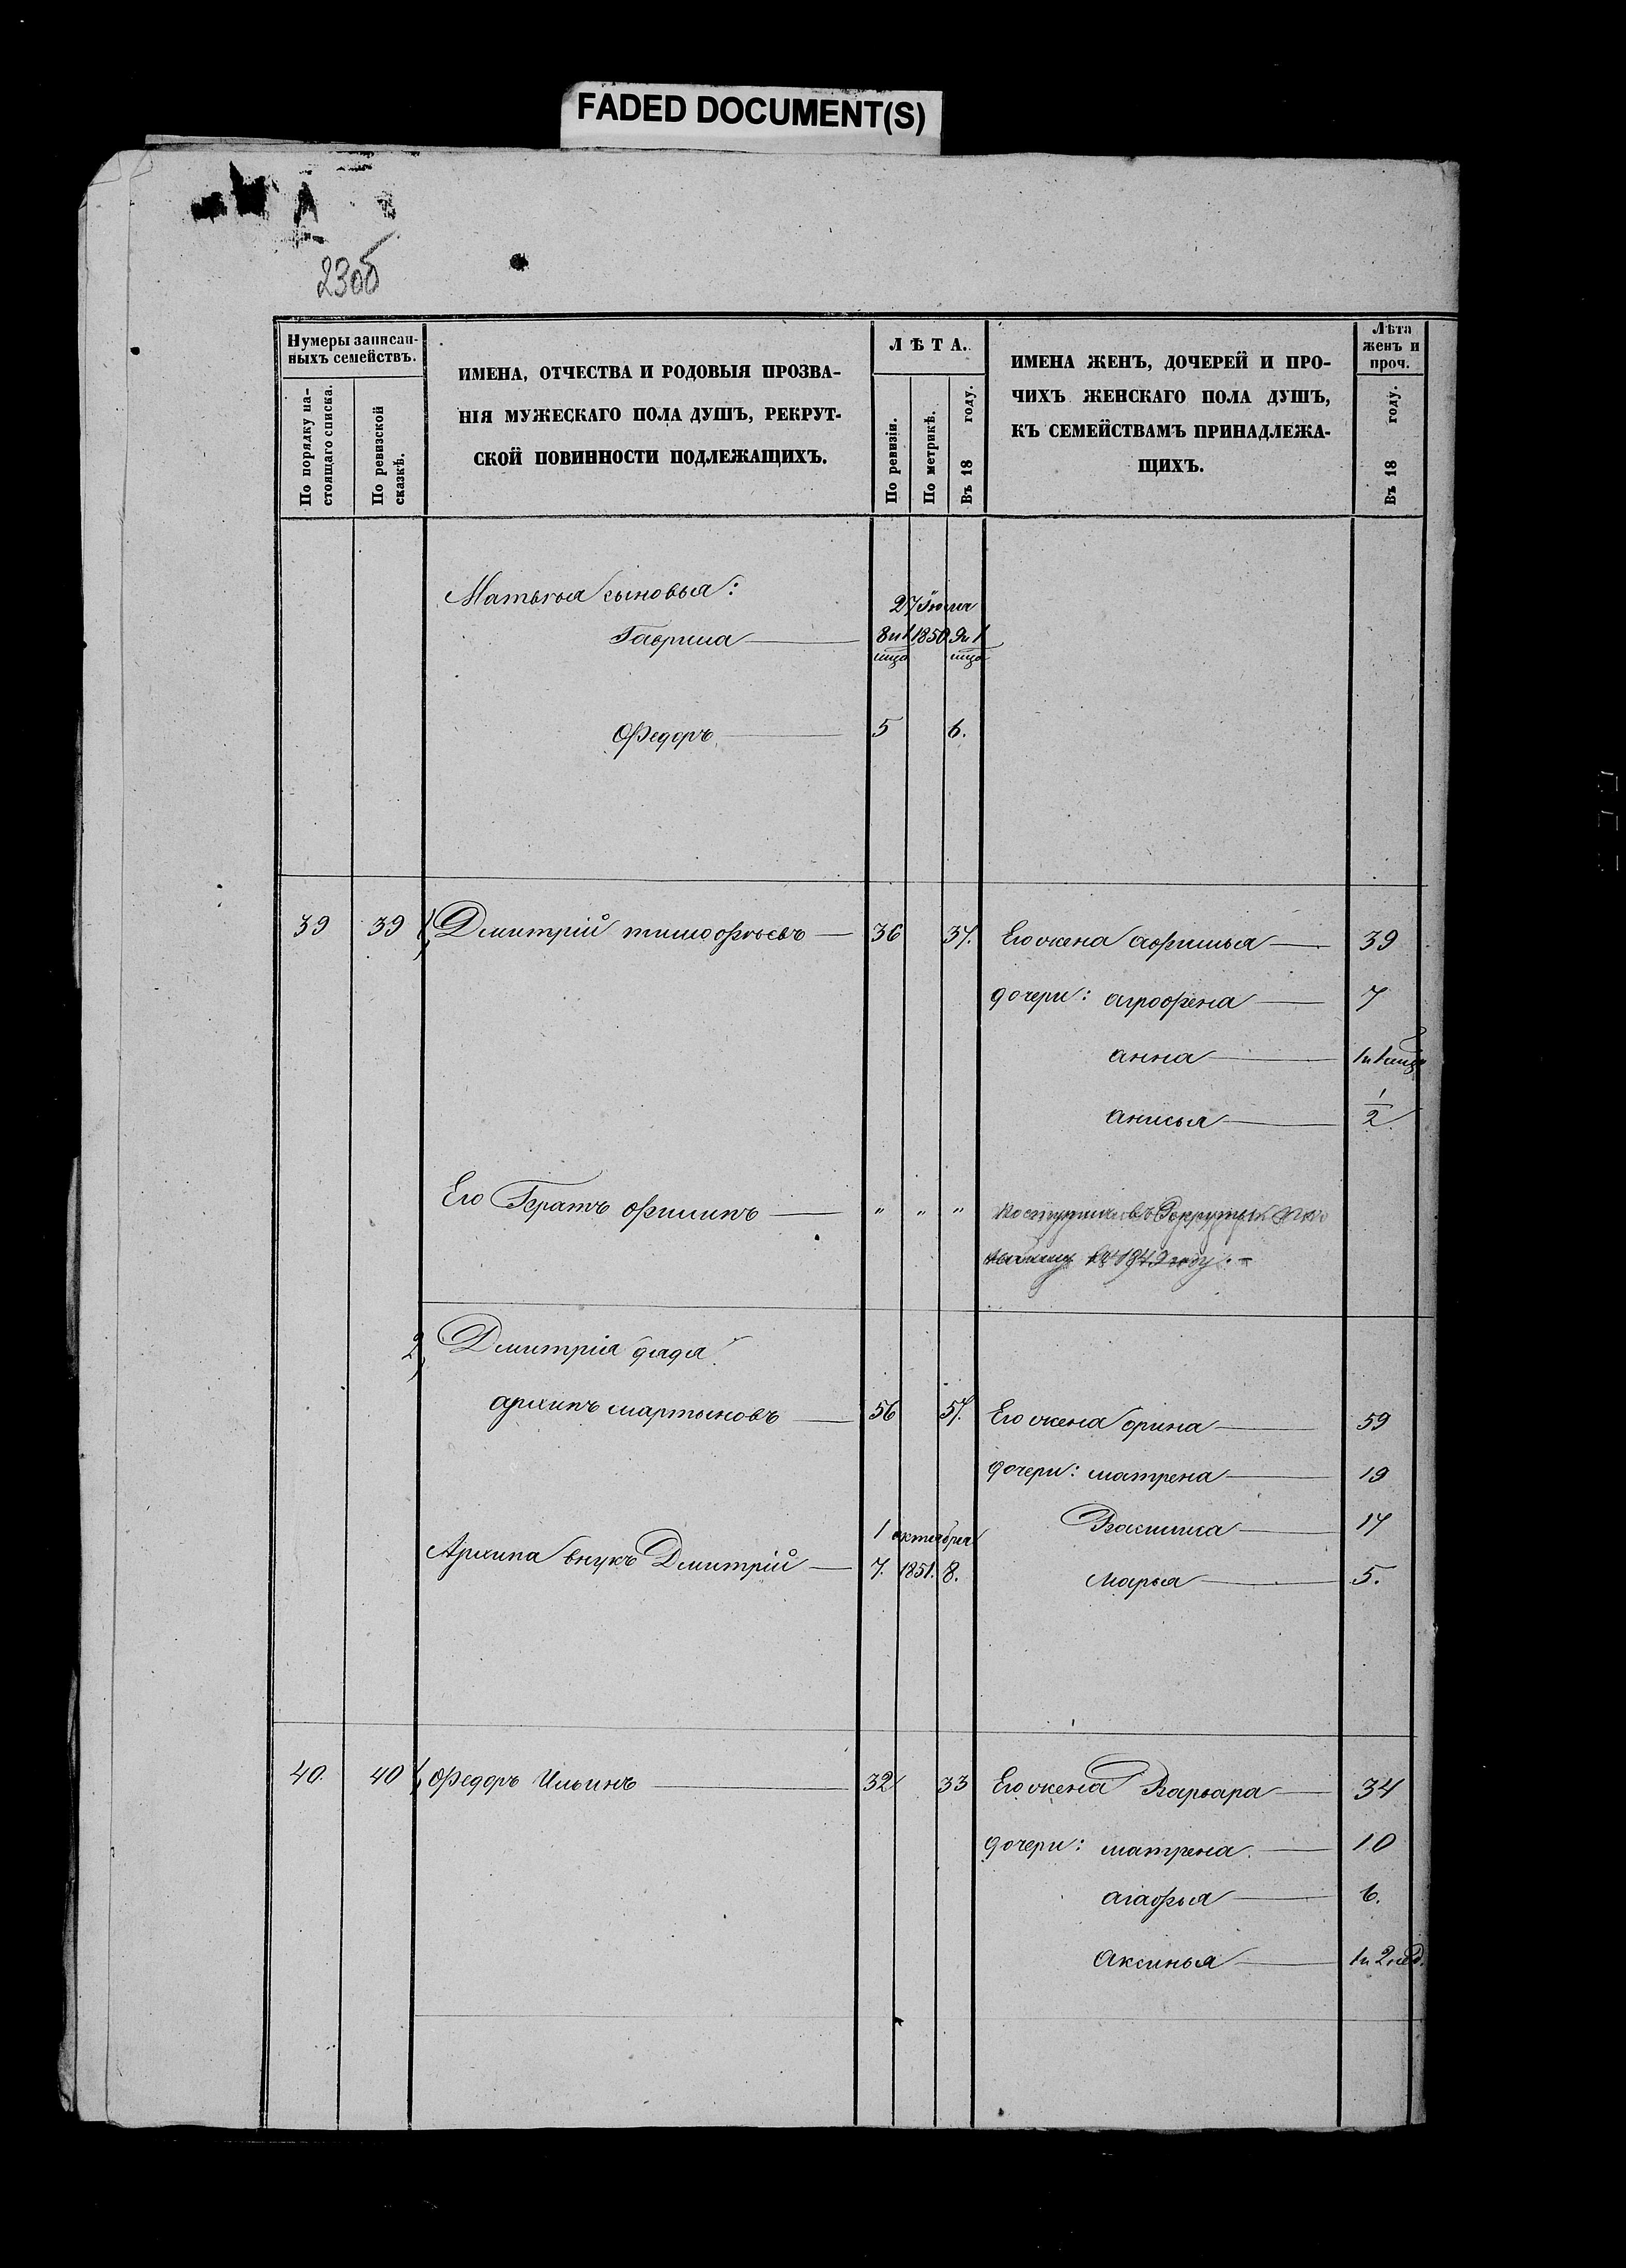 FADED DOCUMENT(S)
23об
Нумеры записан-
ныхъ семействъ.
По порядку на-
стоящаго списка.
По ревизской
сказкѣ.
ИМЕНА, ОТЧЕСТВА И РОДОВЫЯ ПРОЗВА-
НІЯ МУЖЕСКАГО ПОЛА ДУШЪ, РЕКРУТ-
СКОЙ ПОВИННОСТИ ПОДЛЕЖАЩИХЪ.
ЛѢТА.
По ревизіи.
По метрикѣ.
Въ 18 году.
ИМЕНА ЖЕНЪ, ДОЧЕРЕЙ И ПРО-
ЧИХЪ ЖЕНСКАГО ПОЛА ДУШЪ,
КЪ СЕМЕЙСТВАМЪ ПРИНАДЛЕЖА-
ЩИХЪ.
Лѣта
женъ и
проч.
Въ 18 году.
сыновья:
Гаврила 8 и 1 1850 9 и 1
Федоръ 5 6.
39 39 Дмитрій тимофѣевъ 36 37. Его жена 39
дочери: аграфена 7
анна
анисья 1/2
Его Братъ филипъ " " " Поступилъ въ
въ 1849 году.
2) Дмитрія дядя
архипъ мартыновъ 56 57. Его жена орина 59
дочери: матрена 19
1 октября
Василиса 17
Архипа внукъ Дмитрій 7. 1851. 8.
Марья 5.
40. 40 Федоръ Ильинъ 32 33 Его жена Варвара 34
дочери: матрена 10
агафья 6.
Аксинья 1 и 2 нед.